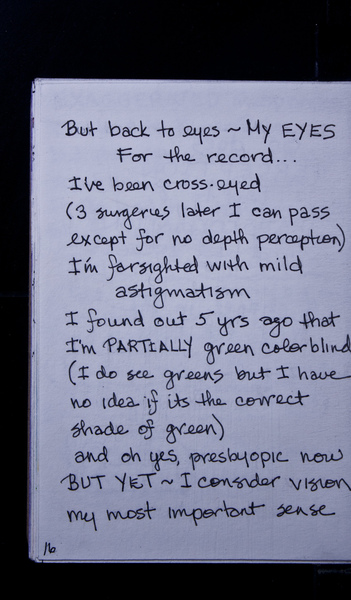 But back to eyes ~ My EYES
For the record...
I've been cross-eyed
(3 surgeries later I can pass
except for no depth perception)
I'm farsighted with mild
astigmatism
I found out 5 yrs ago that
I'm PARTIALLY green colorblind
(I do see greens but I have
no idea if its the correct
shade of green)
and oh yes, presbyopic now
BUT YET ~ I consider vision
my most important sense
16